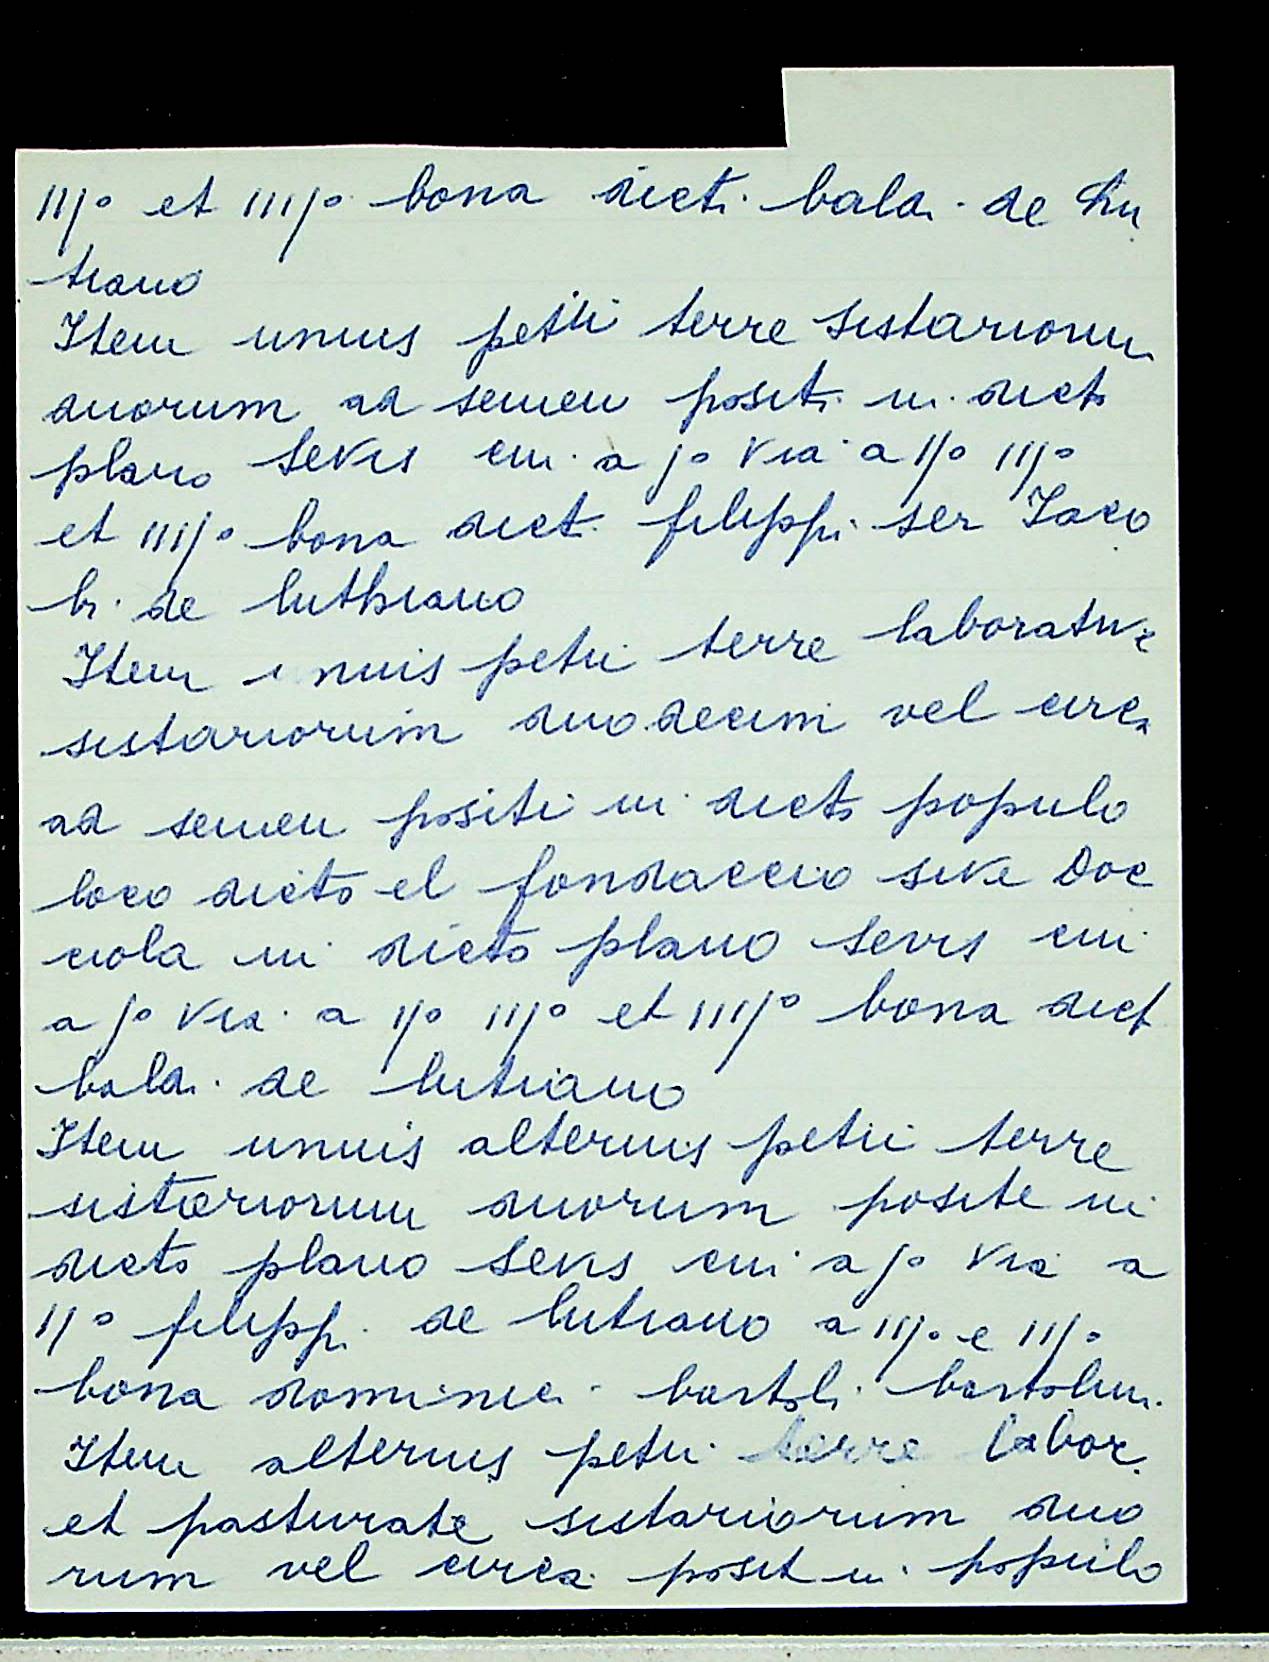 IIJº et IIIJº bona dicti bald. de Lu
tiano
Item unius petii terre sistariorum
duorum ad semen positi in dicto
plano Sevis cui a Jº via a IJº IIJº
et IIIJº bona dict. filippi ser Jaco
bi de luthiano
Item unius petii terre laborative
sistariorum duodecim vel circa
ad semen positi in dicto populo
loco dicto el fondaccio sive Doc
ciola in dicto plano Sevis cui
a Jº via a IJº IIJº et IIIJº bona dict
bald. de lutiano
Item unuis alterius petii terre
sistariorum duorum posite in
dicto plano Sevis cui a Jº via a
IJº filipp. de lutiano a IIJº e IIIJº
bona dominici bartoli bartolini
Item alterius petii terre labor.
et pasturate sistariorum duo
rum vel circa posit in populo